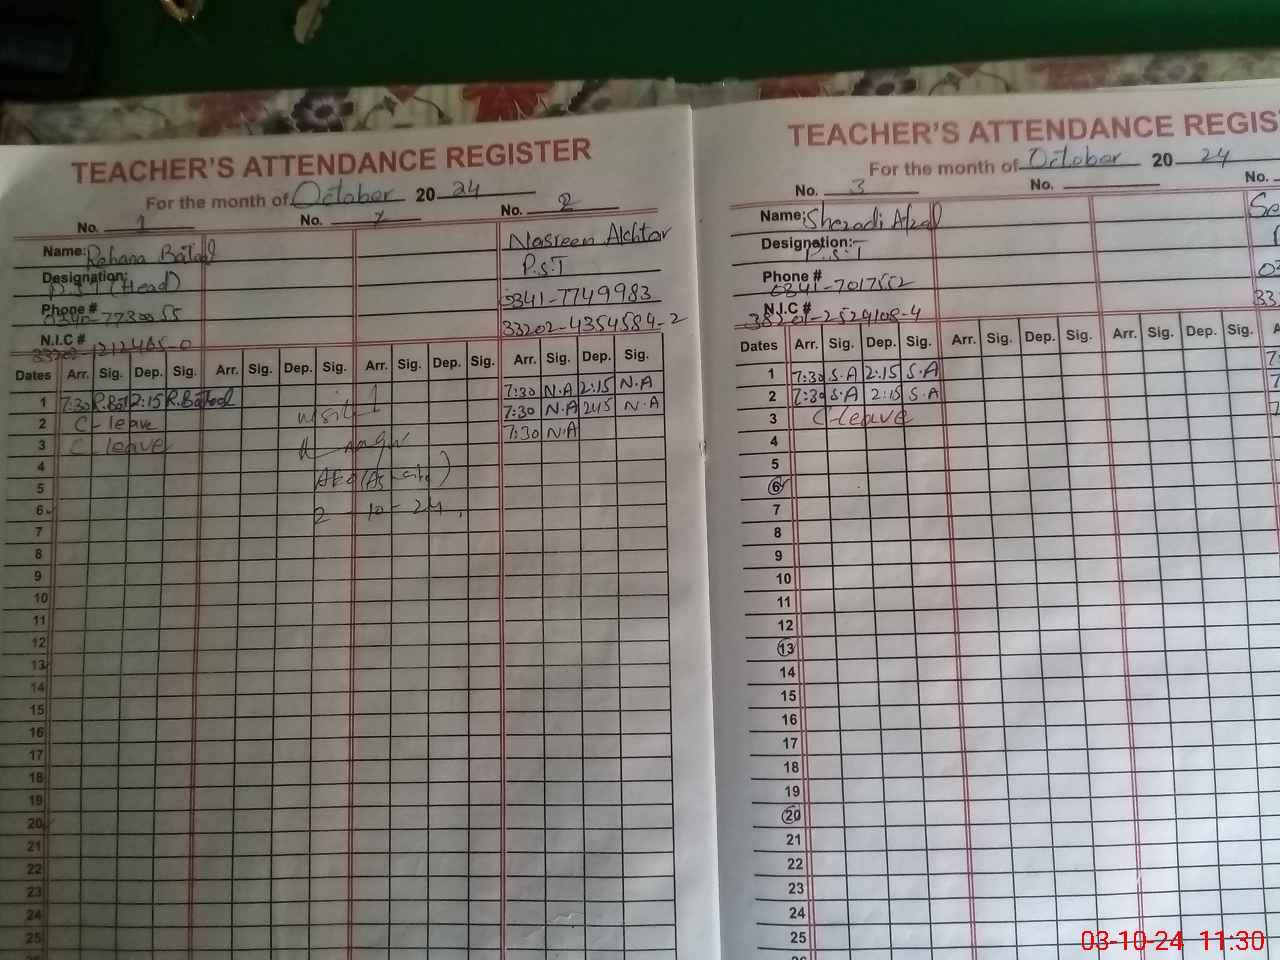 TEACHER'S ATTENDANCE REGISTER
For the month of October 20 24
No. 1 No. No. 2
Name: Rehana Batool Nasreen Akhtar
Designation: P.S.T (Head) P.S.T
Phone # 0341-7749983
N.I.C # 33202-4354584-2
Dates Arr. Sig. Dep. Sig. Arr. Sig. Dep. Sig. Arr. Sig. Dep. Sig. Arr. Sig. Dep. Sig.
1 7:30 R.Bat 2:15 R.Batool 7:30 N.A 2:15 N.A
2 C-leave visit 7:30 N.A 2:15 N.A
3 C-leave 7:30 N.A
4
5
6
2-10-24
7
8
9
10
11
12
13
14
15
16
17
18
19
20
21
22
23
24
25
TEACHER'S ATTENDANCE REGIS
For the month of October 20 24
No. 3 No. No.
Name: Shezadi Afzal
Designation: P.S.T
Phone # 0341-7017552
N.I.C # 38201-2529108-4
Dates Arr. Sig. Dep. Sig. Arr. Sig. Dep. Sig. Arr. Sig. Dep. Sig.
1 7:30 S.A 2:15 S.A
2 7:30 S.A 2:15 S.A
3 C-leave
4
5
6
7
8
9
10
11
12
13
14
15
16
17
18
19
20
21
22
23
24
25
03-10-24 11:30